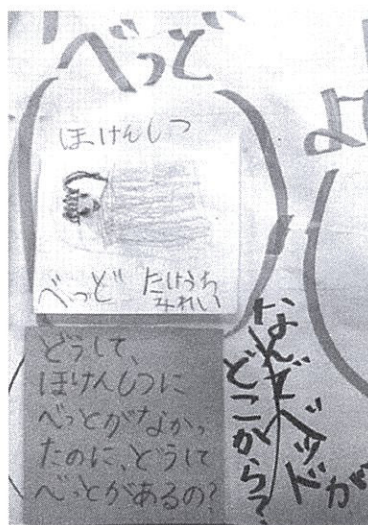 べっど
ほけんしつ
べっど
たけうち
みれい
どうして、
ほけんしつに
べっとがなかっ
たのに、どうして
べっとがあるの?
なんでベッドが
どこから?
よ